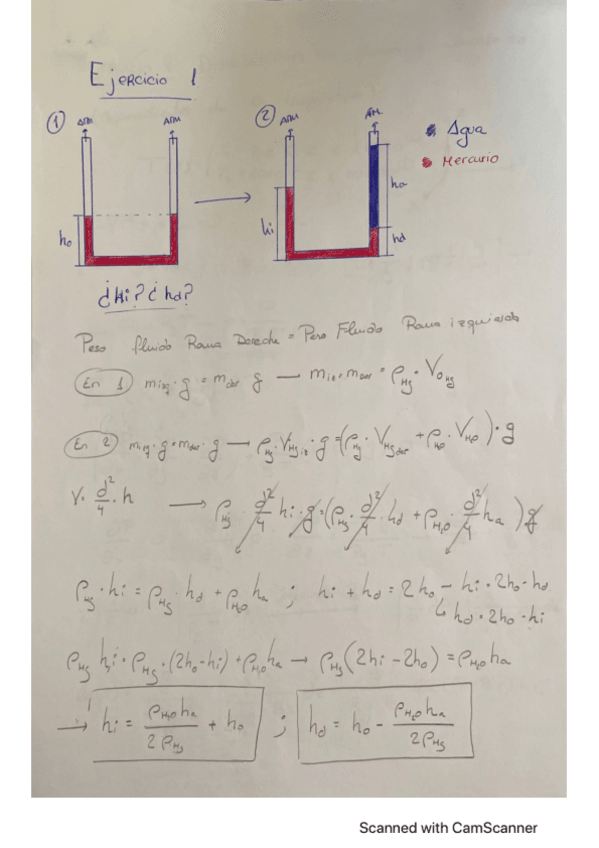 Ejercicio 1
① ATM ATM
② ATM ATM
Agua
Mercurio
ho
hi
ha
hd
¿Hi? ¿hd?
Peso fluido Rama Derecha = Peso Fluido Rama izquierda
En 1) mizq · g = mder g — miz = mder = ρHg · VoHg
En 2 mizq · g = mder · g → ρHg · VHg iz · g = (ρHg · VHg der + ρH2O · VH2O) · g
V = d²/4 · h → ρHg · d²/4 hi · g = (ρHg · d²/4 · hd + ρH2O · d²/4 ha) g
ρHg · hi = ρHg · hd + ρH2O ha ; hi + hd = 2ho — hi = 2ho - hd
↳ hd = 2ho - hi
ρHg hi = ρHg · (2ho - hi) + ρH2O ha → ρHg (2hi - 2ho) = ρH2O ha
→ hi = ρH2O ha / 2 ρHg + ho ; hd = ho - ρH2O ha / 2 ρHg
Scanned with CamScanner